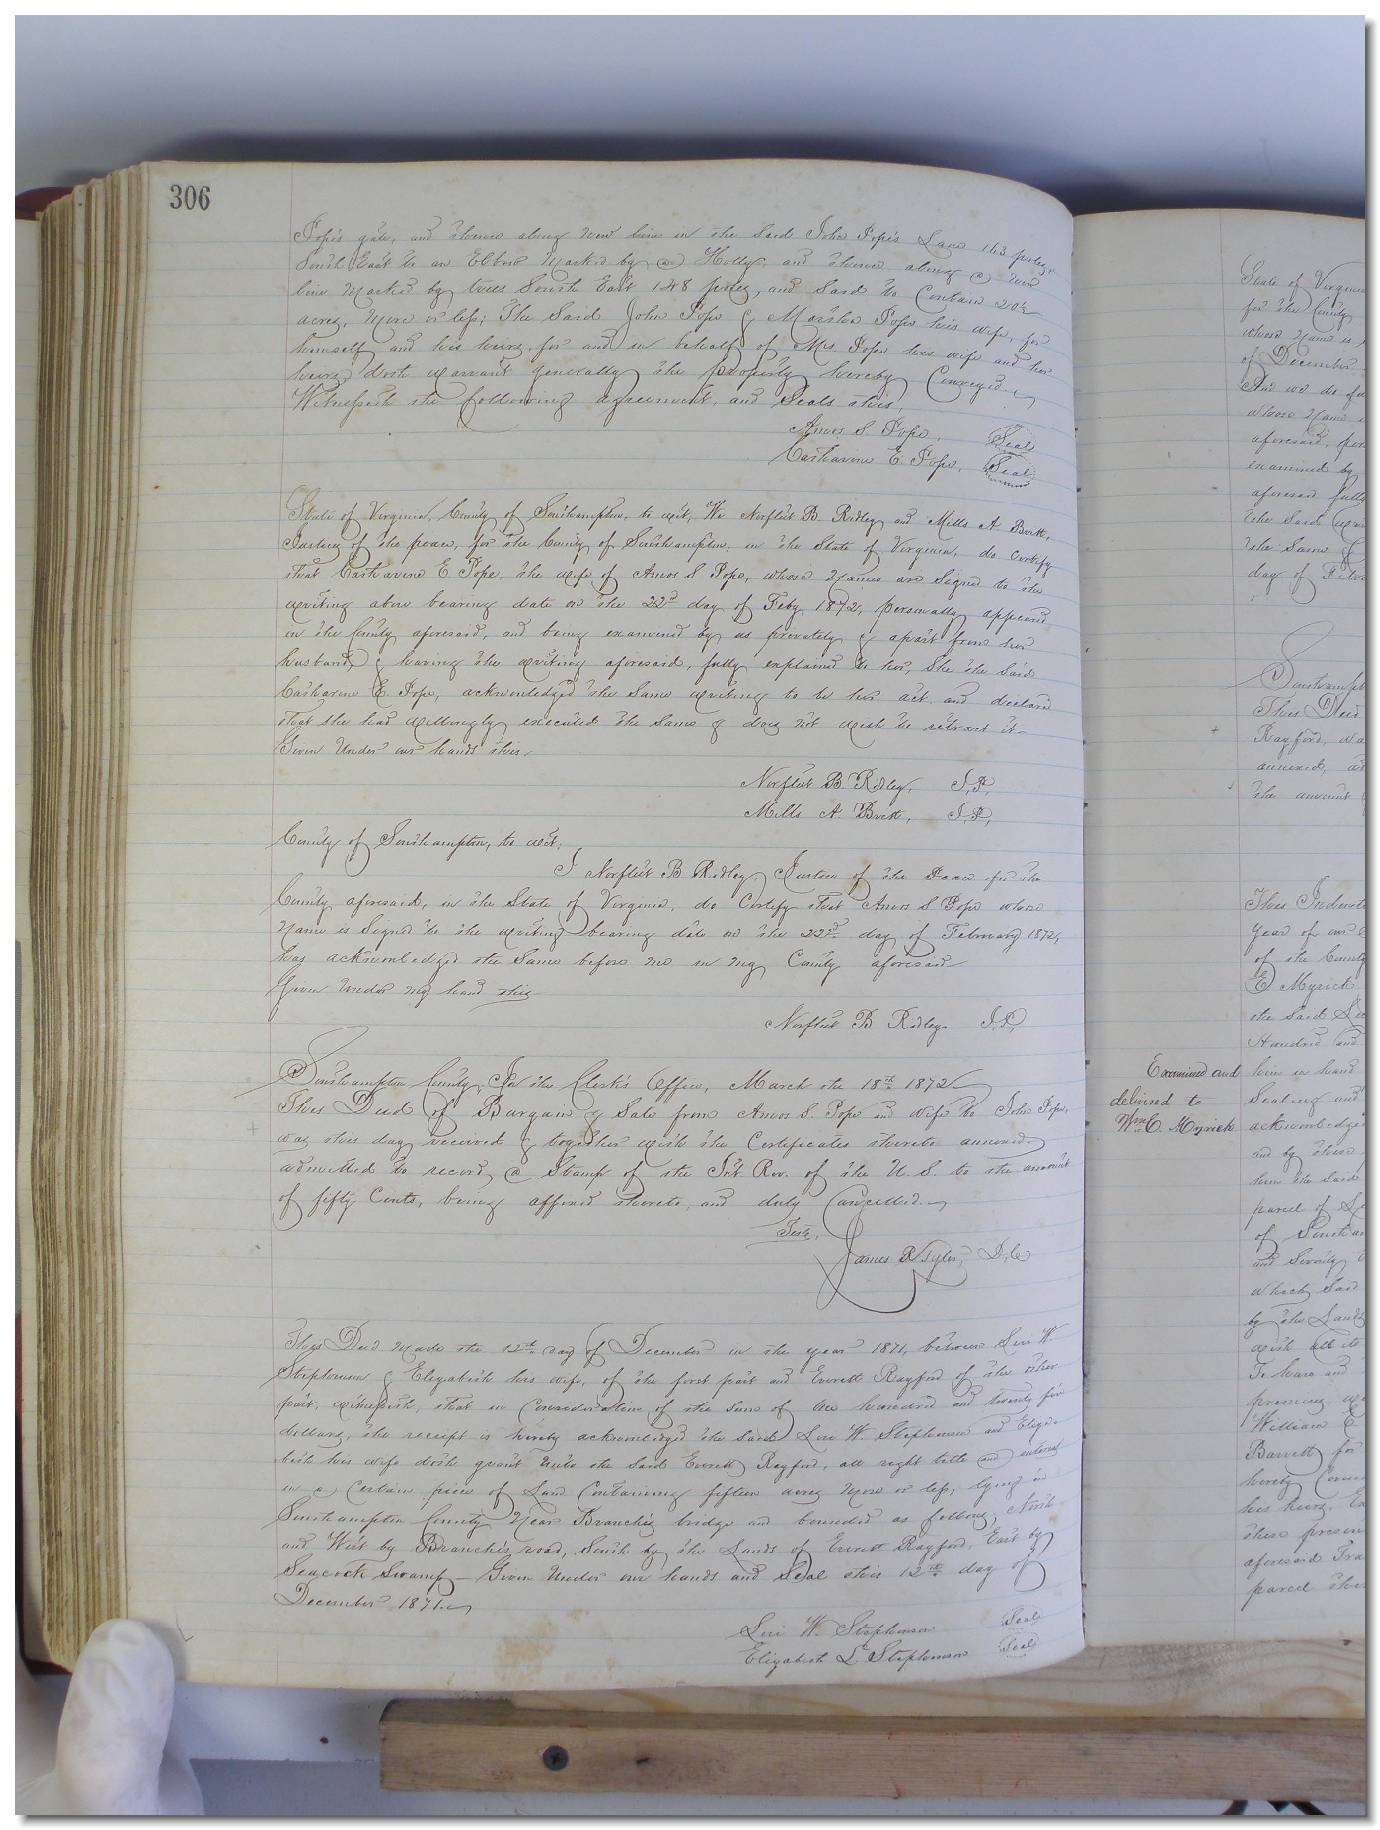 306
Pope's gate, and thence along new line in the Said John Pope's Lane 163 poles
South East to an Elbow Marked by a Holly, and thence along a new
line Marked by trees South East 148 poles, and Said to Contain 201
acres, More or less; The Said John Pope & Martha Pope his wife, for
himself and his heirs, for and in behalf of Mrs. Pope his wife and her
heirs, doth warrant generally the property hereby Conveyed.
Witnesseth the following agreement, and Seals this,
Amos S. Pope, Seal
Catharine E. Pope, Seal
State of Virginia, County of Southampton, to wit, We Norfleet B. Ridley and Mills A Britt,
Justices of the peace, for the County of Southampton, in the State of Virginia, do Certify
that Catharine E. Pope, the wife of Amos S Pope, whose Names are Signed to the
writing above bearing date on the 22d day of Feby 1872, personally appeared
in the County aforesaid, and being examined by us privately & apart from her
husband, & having the writing aforesaid, fully explained to her, She the Said
Catharine E. Pope, acknowledged the Same writing to be her act, and declared
that she had willingly executed the Same & does not wish to retract it—
Given Under our hands this—
Norfleet B. Ridley, J.P.
Mills A. Britt, J.P.
County of Southampton, to wit,
I Norfleet B Ridley Justice of the Peace for the
County aforesaid, in the State of Virginia, do Certify that Amos S Pope whose
Name is Signed to the writing bearing date on the 22nd day of February 1872,
has acknowledged the Same before me in my County aforesaid—
Given Under my hand this
Norfleet B Ridley. J.P.
Southampton County, In the Clerk's Office, March the 18th 1872
This Deed of Bargain & Sale from Amos S. Pope and wife to John Pope,
was this day received & together with the Certificates thereto annexed,
admitted to record, a Stamp of the Int Rev. of the U. S. to the amount
of fifty Cents, being affixed thereto, and duly Cancelled.
Teste,
James R Tyler, D.C.
This Deed Made the 12th day of December in the year 1871, between Levi W.
Stephenson & Elizabeth his wife, of the first part and Everett Rayford of the other
part, witnesseth, that in Consideration of the Sum of One hundred and twenty five
dollars, the receipt is hereby acknowledged the Said Levi W. Stephenson and Eliza-
beth his wife doth grant Unto the Said Everett Rayford, all right title and interest
in a Certain piece of Land Containing fifteen acres More or less, lying in
Southampton County Near Branch's bridge and bounded as follows, North
and West by Branch's road, South by the Lands of Everett Rayford, East by
Seacock Swamp— Given Under our hands and Seal this 12th day of
December 1871.
Levi W. Stephenson Seal
Elizabeth L Stephenson Seal
State of Virginia
for the County
whose Name is
of December
And we do
whose Name
aforesaid,
examined by
aforesaid fully
the Said
the Same
day of
Southampt
This Deed
Rayford, wa
annexed,
the amount
This Indent
Year of our
of the County
E Myrick
the Said
Hundred and
him in hand
Sealing and
acknowledge
and by these
him the Said
parcel of
of Southam
and Seventy
which Said
by the Land
with all its
To have and
premises
William E
Barrett for
hereby
his heirs,
these presen
aforesaid Tra
parcel
Examined and
delivered to
Wm E. Myrick